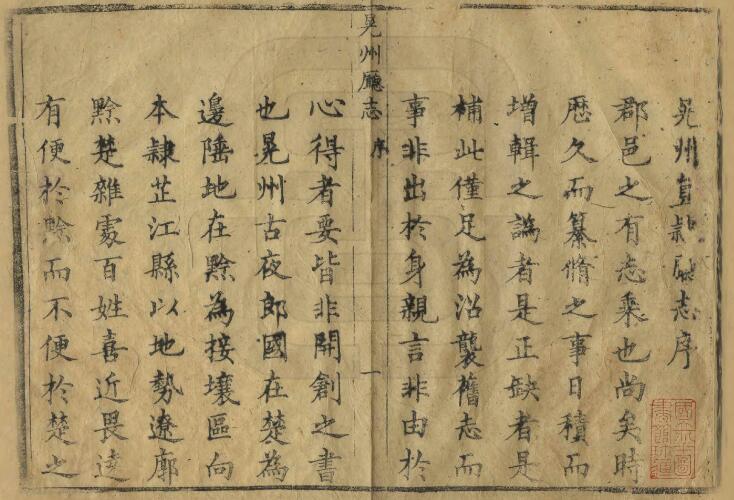 晃州直隸廳志序
郡邑之有志乘也尚矣時
歴久而纂脩之事日積而
增輯之譌者是正缺者是
補此僅足為沿襲舊志而
事非出於身親言非由於
晃州廳志 序 一
心得者要皆非開創之書
也晃州古夜郎國在楚為
邊陲地在黔為接壤區向
本隸芷江縣以地勢遼廓
黔楚雜處百姓喜近畏遠
有便於黔而不便於楚之